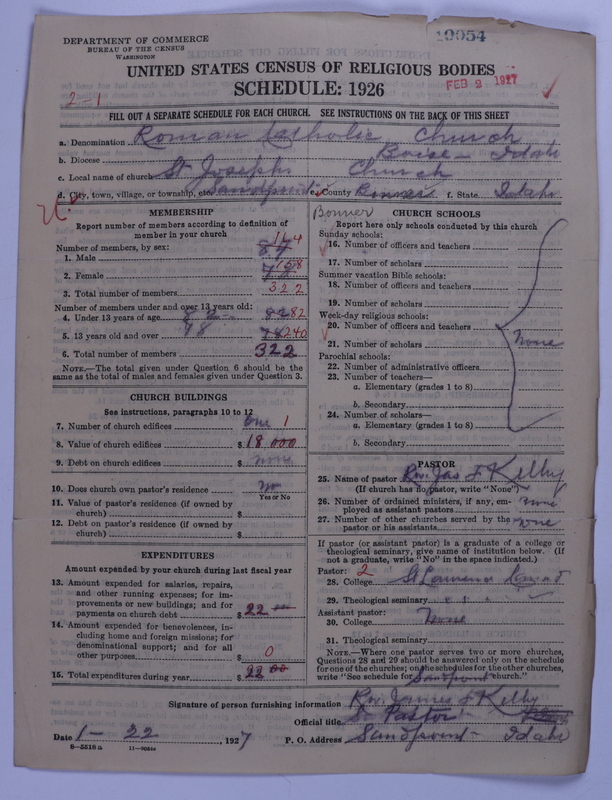 DEPARTMENT OF COMMERCE
BUREAU OF THE CENSUS
WASHINGTON
19054
UNITED STATES CENSUS OF RELIGIOUS BODIES
SCHEDULE: 1926
FEB 2 1927
2-1
FILL OUT A SEPARATE SCHEDULE FOR EACH CHURCH. SEE INSTRUCTIONS ON THE BACK OF THIS SHEET
a. Denomination Roman Catholic Church
b. Diocese Boise - Idaho
c. Local name of church St Josephs Church
d. City, town, village, or township, etc. Sandpoint e. County Bonner f. State Idaho
Bonner
MEMBERSHIP
Report number of members according to definition of member in your church
Number of members, by sex:
1. Male 87 164
2. Female 158
3. Total number of members 322
Number of members under and over 13 years old:
4. Under 13 years of age 82 82 82
5. 13 years old and over 78 240
6. Total number of members 322
NOTE.—The total given under Question 6 should be the same as the total of males and females given under Question 3.
CHURCH BUILDINGS
See instructions, paragraphs 10 to 12
7. Number of church edifices One 1
8. Value of church edifices $ 18 000
9. Debt on church edifices $ none
10. Does church own pastor's residence No
Yes or No
11. Value of pastor's residence (if owned by church) $
12. Debt on pastor's residence (if owned by church) $
EXPENDITURES
Amount expended by your church during last fiscal year
13. Amount expended for salaries, repairs, and other running expenses; for improvements or new buildings; and for payments on church debt $ 22
14. Amount expended for benevolences, including home and foreign missions; for denominational support; and for all other purposes $ 0
15. Total expenditures during year $ 22 00
CHURCH SCHOOLS
Report here only schools conducted by this church
Sunday schools:
16. Number of officers and teachers
17. Number of scholars
Summer vacation Bible schools:
18. Number of officers and teachers
19. Number of scholars
Week-day religious schools:
20. Number of officers and teachers
21. Number of scholars None
Parochial schools:
22. Number of administrative officers
23. Number of teachers—
a. Elementary (grades 1 to 8)
b. Secondary
24. Number of scholars—
a. Elementary (grades 1 to 8)
b. Secondary
PASTOR
25. Name of pastor Rev. Jas F Kelly
(If church has no pastor, write "None")
26. Number of ordained ministers, if any, employed as assistant pastors none
27. Number of other churches served by the pastor or his assistants none
If pastor (or assistant pastor) is a graduate of a college or theological seminary, give name of institution below. (If not a graduate, write "No" in the space indicated.)
Pastor: 2
28. College St
29. Theological seminary
Assistant pastor:
30. College None
31. Theological seminary
NOTE.—Where one pastor serves two or more churches, Questions 28 and 29 should be answered only on the schedule for one of the churches; on the schedules for the other churches, write "See schedule for Sandpoint church."
Signature of person furnishing information Rev. James F Kelly
Official title Pastor
Date 1-22, 1927 P. O. Address Sandpoint - Idaho
8-5518a 11-9034a